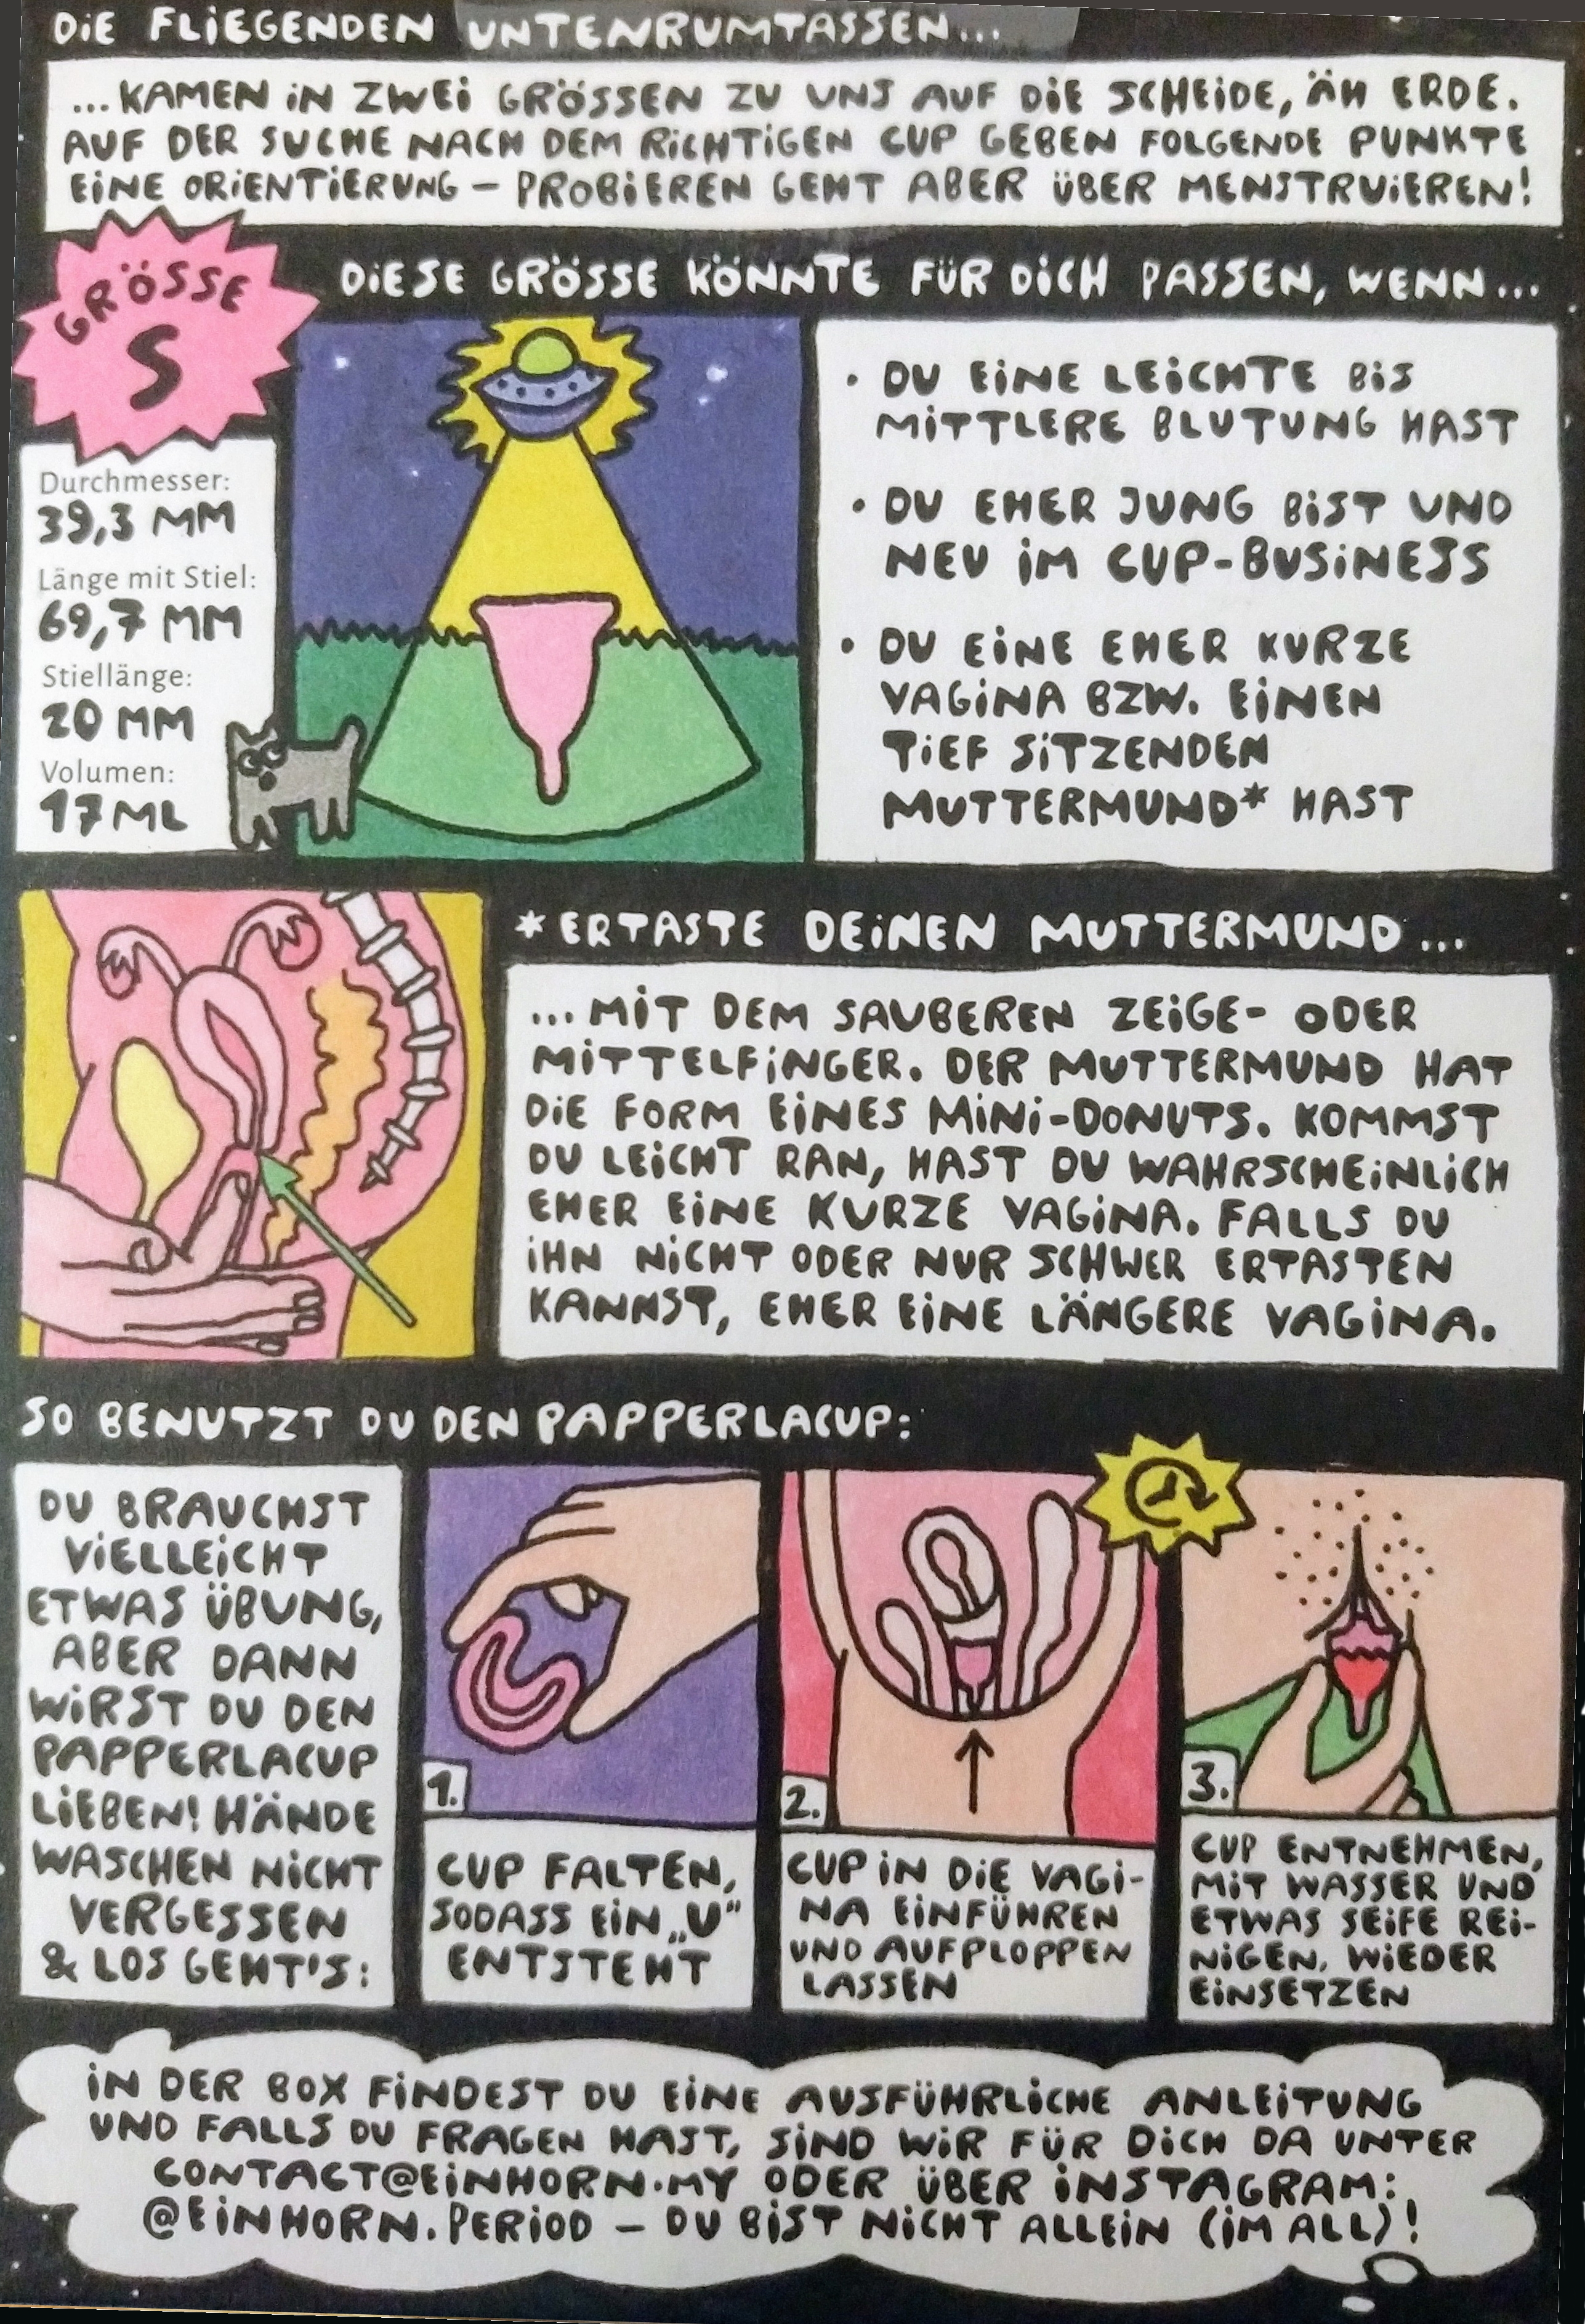 DIE FLIEGENDEN UNTENRUMTASSEN...
...KAMEN IN ZWEI GRÖSSEN ZU UNS AUF DIE SCHEIDE, ÄH ERDE.
AUF DER SUCHE NACH DEM RICHTIGEN CUP GEBEN FOLGENDE PUNKTE
EINE ORIENTIERUNG – PROBIEREN GEHT ABER ÜBER MENSTRUIEREN!
GRÖSSE
S
DIESE GRÖSSE KÖNNTE FÜR DICH PASSEN, WENN...
Durchmesser:
39,3 MM
Länge mit Stiel:
69,7 MM
Stiellänge:
20 MM
Volumen:
17 ML
• DU EINE LEICHTE BIS
MITTLERE BLUTUNG HAST
• DU EHER JUNG BIST UND
NEU IM CUP-BUSINESS
• DU EINE EHER KURZE
VAGINA BZW. EINEN
TIEF SITZENDEN
MUTTERMUND* HAST
*ERTASTE DEINEN MUTTERMUND...
...MIT DEM SAUBEREN ZEIGE- ODER
MITTELFINGER. DER MUTTERMUND HAT
DIE FORM EINES MINI-DONUTS. KOMMST
DU LEICHT RAN, HAST DU WAHRSCHEINLICH
EHER EINE KURZE VAGINA. FALLS DU
IHN NICHT ODER NUR SCHWER ERTASTEN
KANNST, EHER EINE LÄNGERE VAGINA.
SO BENUTZT DU DEN PAPPERLACUP:
DU BRAUCHST
VIELLEICHT
ETWAS ÜBUNG,
ABER DANN
WIRST DU DEN
PAPPERLACUP
LIEBEN! HÄNDE
WASCHEN NICHT
VERGESSEN
& LOS GEHT'S:
1.
CUP FALTEN,
SODASS EIN „U“
ENTSTEHT
2.
CUP IN DIE VAGI-
NA EINFÜHREN
UND AUFPLOPPEN
LASSEN
3.
CUP ENTNEHMEN,
MIT WASSER UND
ETWAS SEIFE REI-
NIGEN, WIEDER
EINSETZEN
IN DER BOX FINDEST DU EINE AUSFÜHRLICHE ANLEITUNG
UND FALLS DU FRAGEN HAST, SIND WIR FÜR DICH DA UNTER
CONTACT@EINHORN.MY ODER ÜBER INSTAGRAM:
@EINHORN.PERIOD – DU BIST NICHT ALLEIN (IM ALL)!